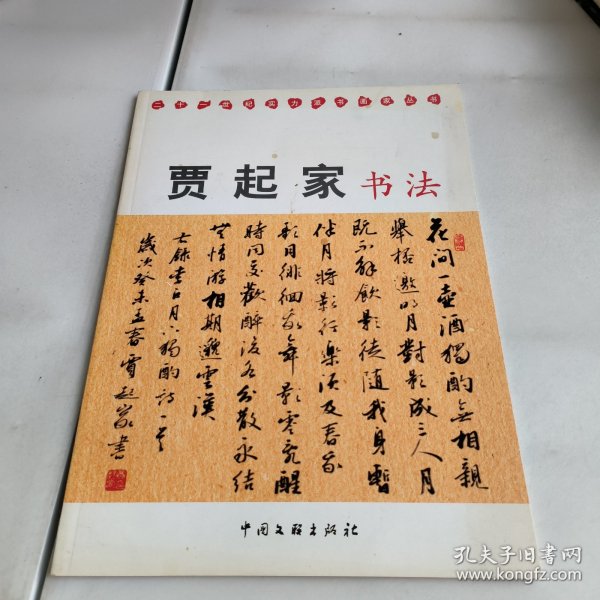 二十一世纪实力派书画家丛书
贾起家书法
花间一壶酒獨酌無相親
舉杯邀明月對影成三人月
既不解飲影徒隨我身暫
伴月將影行樂須及春我
歌月徘徊我舞影零亂醒
時同交歡醉後各分散永結
無情游相期邈雲漢
錄李白月下獨酌詩一首
歲次癸未孟春賈起家書
中国文联出版社
孔夫子旧书网
www.kongfz.com